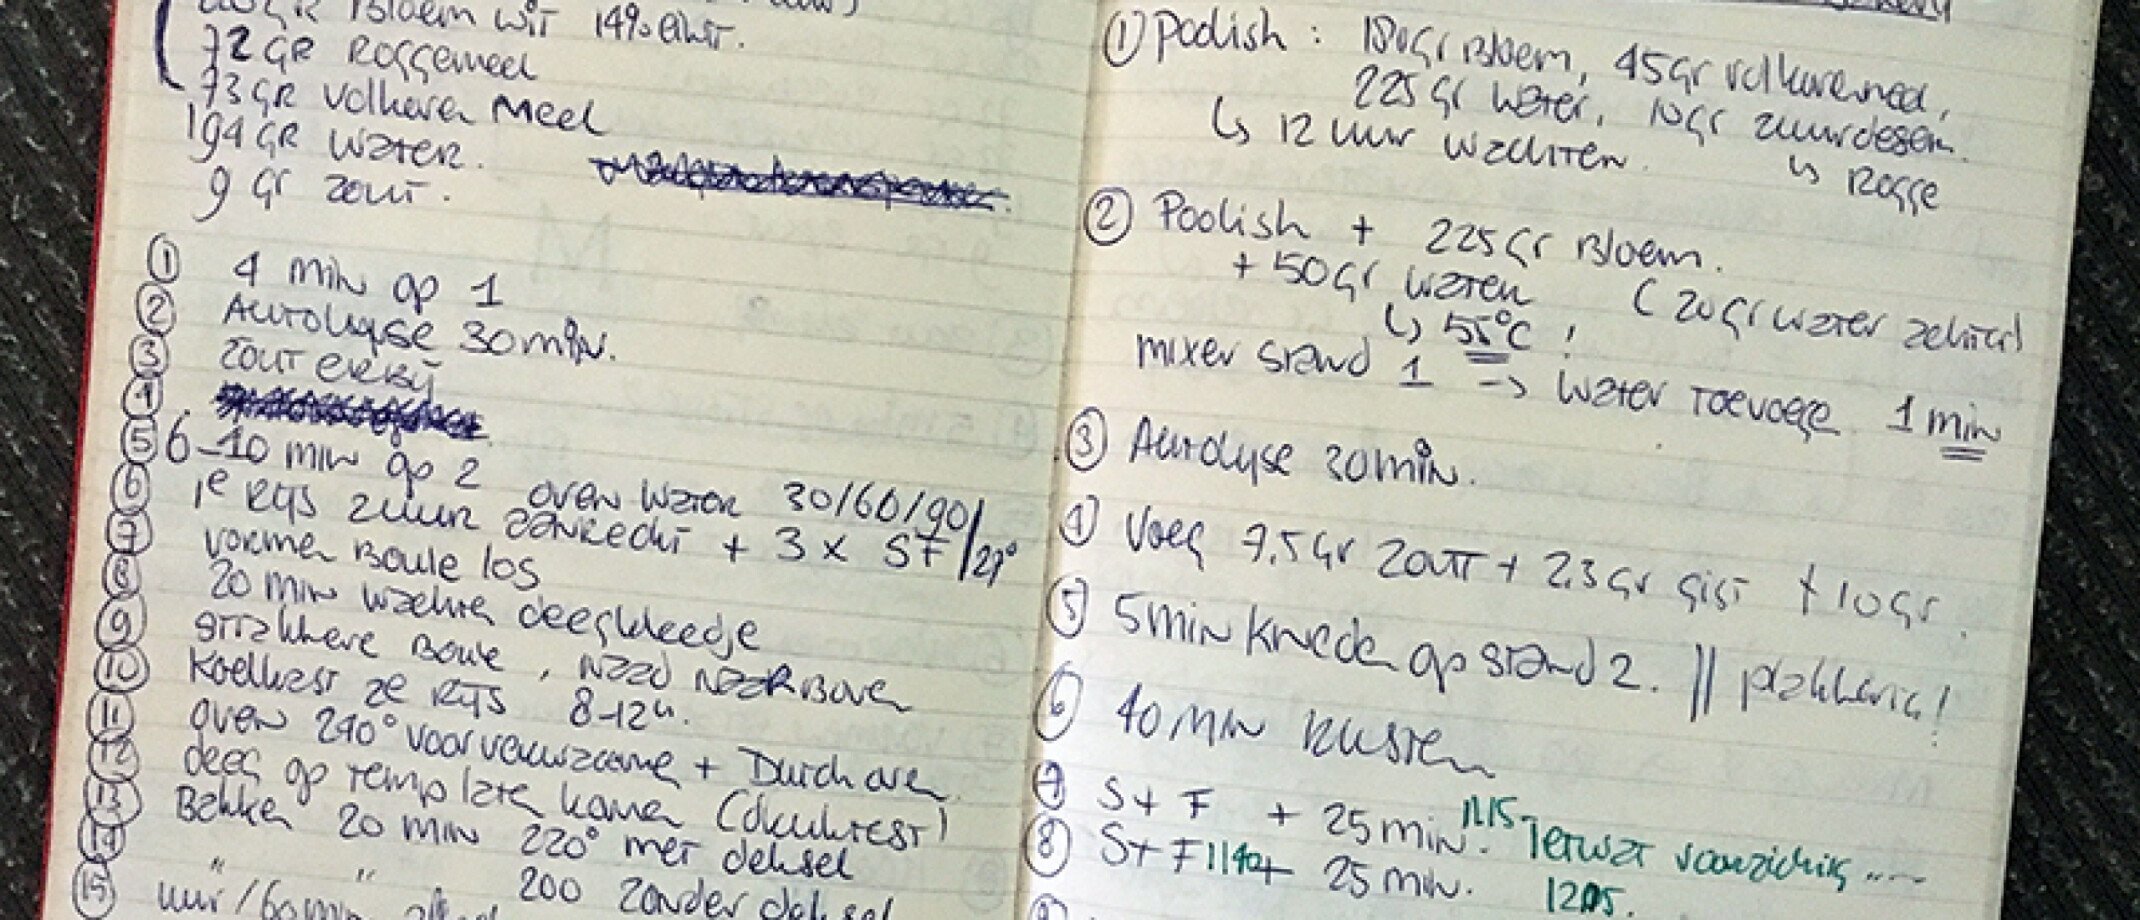 Bloem wit 14% eiwit.
72 GR Roggemeel
73 GR Volkoren Meel
194 GR Water.
9 gr zout.
① 4 min op 1
② Autolyse 30 min.
③ zout erbij
④
⑤ 6-10 min op 2
⑥ 1e Rijs zuur oven water 30/60/90/
⑦ vormen Boule los + 3 x SF /27°
⑧ 20 min wachten deegkleedje
⑨ strakkere Boule, naad naar Boven
⑩ Koelkast 2e Rijs 8-12u.
⑪ oven 240° voorverwarmen + Dutch oven
⑫ deeg op temp laten komen (deuktest)
⑬ Bakken 20 min 220° met deksel
⑭ " " 200 zonder deksel
⑮ uur / 60 min
① Poolish : 180gr Bloem, 45gr volkorenmeel,
225 gr water, 10gr zuurdesem.
↳ 12 uur wachten. ↳ Rogge
② Poolish + 225gr Bloem.
+ 50gr water (20gr water
↳ 55°C !
mixer stand 1 -> water toevoege 1 min
③ Autolyse 30 min.
④ Voeg 7.5gr zout + 2.3gr gist + 10gr.
⑤ 5 min kneden op stand 2. || plakkerig!
⑥ 40 min Rusten
⑦ S+F + 25 min. 1115 Ietwat voorzichtig ....
⑧ S+F 1140 + 25 min. 1205.